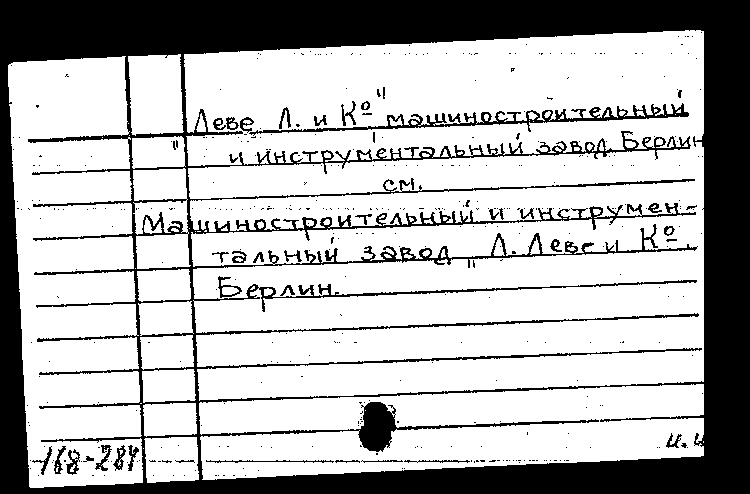 Леве Л. и Кº" машиностроительный
" и инструментальный завод. Берлин
см.
Машиностроительный и инструмен-
тальный завод „Л. Леве и Кº.
Берлин.
168-284